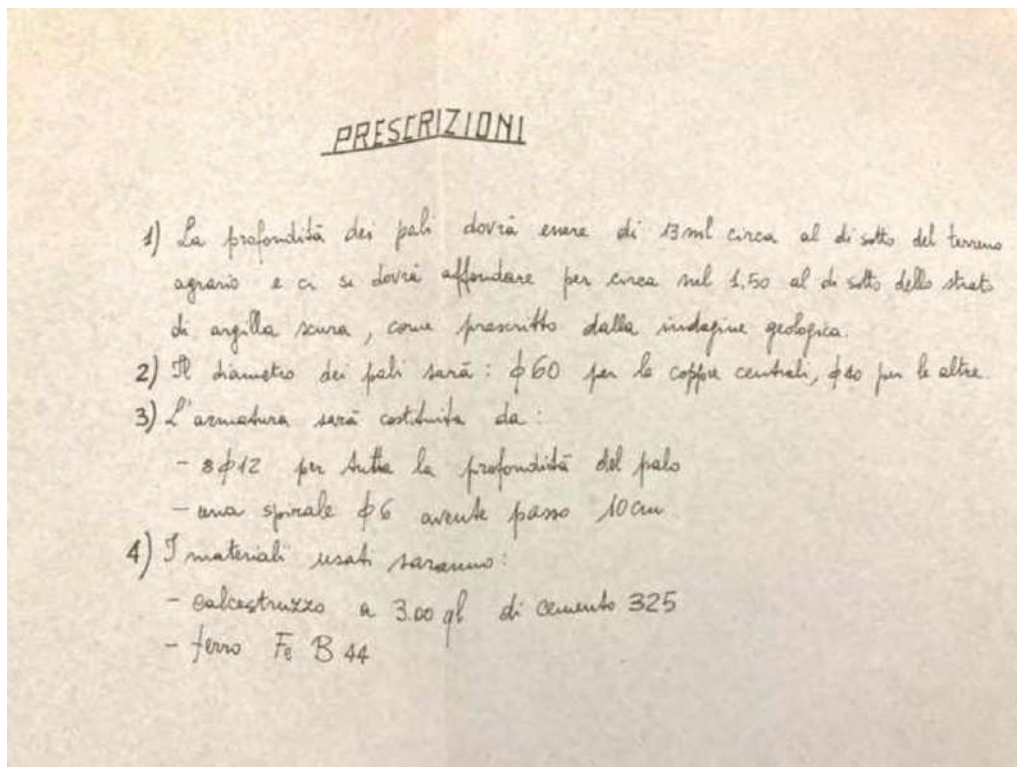 PRESCRIZIONI
1) La profondità dei pali dovrà essere di 13 ml circa al di sotto del terreno
agrario e ci si dovrà affondare per circa ml 1,50 al di sotto dello strato
di argilla scura, come prescritto dalla indagine geologica.
2) Il diametro dei pali sarà: ϕ60 per le coppie centrali, ϕ40 per le altre.
3) L'armatura sarà costituita da:
- 8ϕ12 per tutta la profondità del palo
- una spirale ϕ6 avente passo 10cm
4) I materiali usati saranno:
- calcestruzzo a 3.00 ql di cemento 325
- ferro Fe B 44